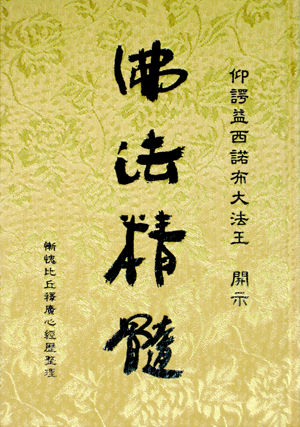 仰諤益西諾布大法王 開示
佛法精髓
慚愧比丘釋廣心經歷整理